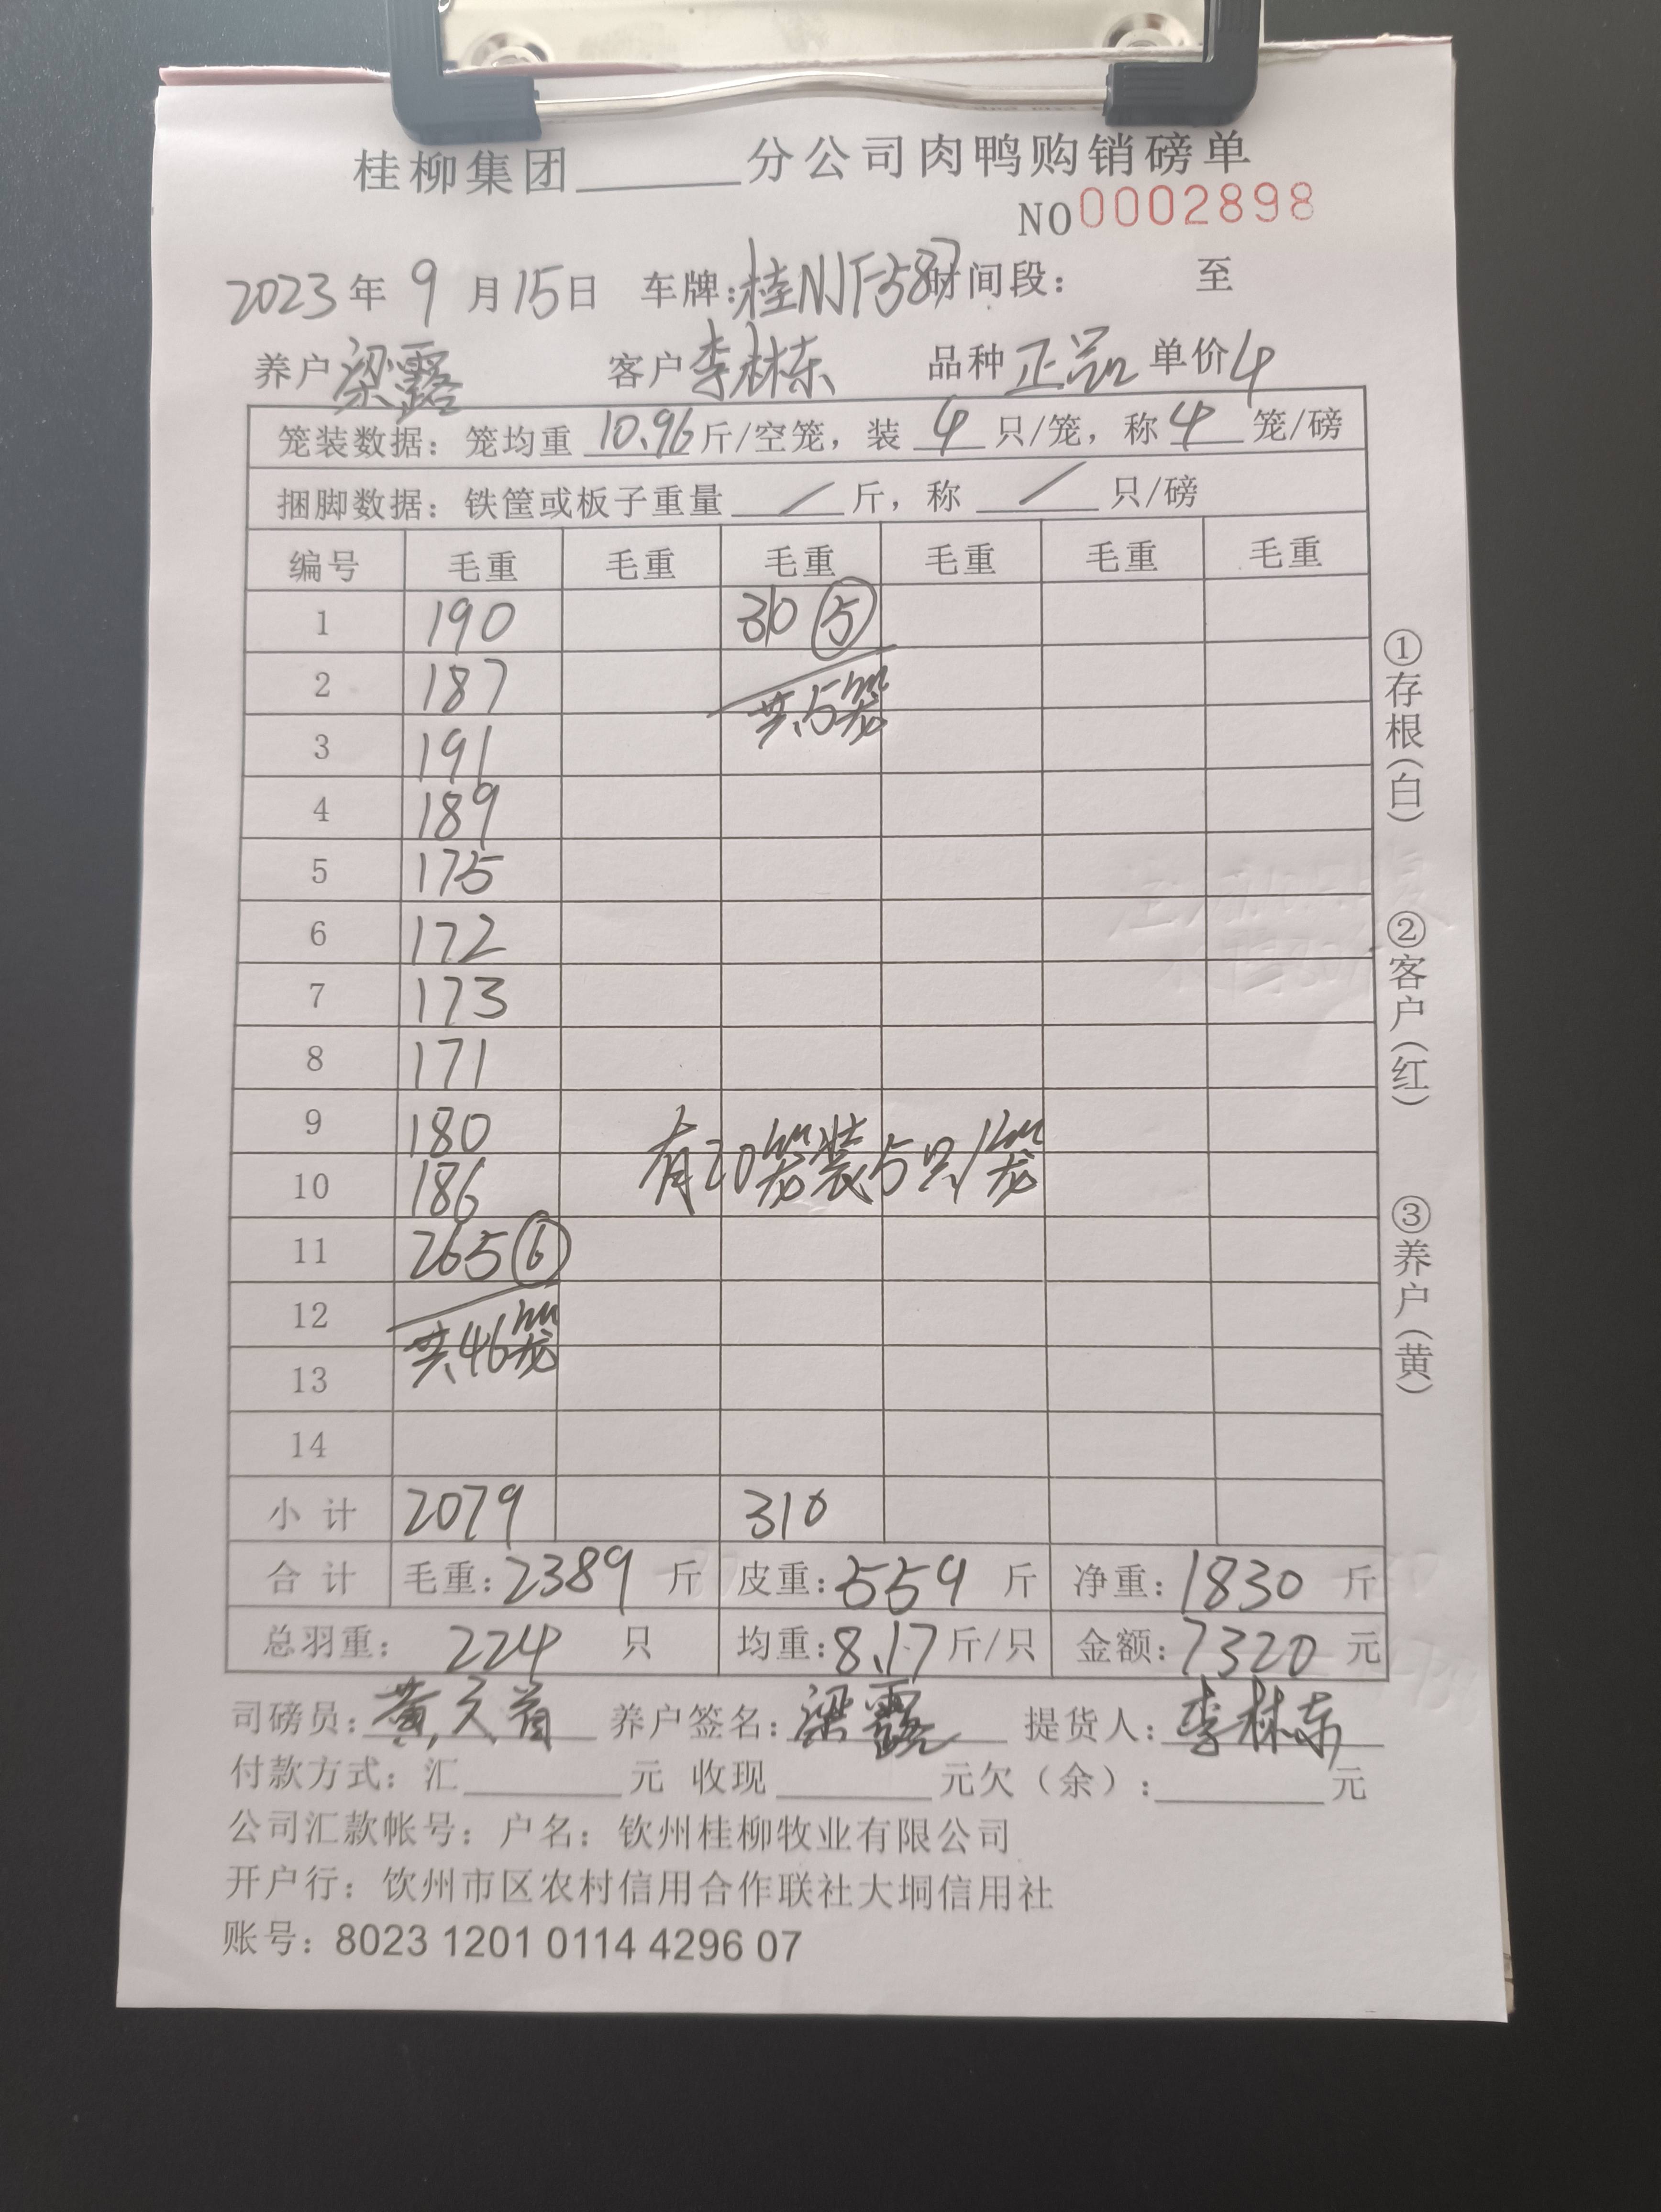 桂柳集团______分公司肉鸭购销磅单
NO0002898
2023年 9 月15日 车牌:桂NJF587时间段： 至
养户梁露 客户李林东 品种正品 单价4
笼装数据：笼均重 10.96斤/空笼，装 4 只/笼，称4 笼/磅
捆脚数据：铁筐或板子重量 / 斤，称 / 只/磅
编号 毛重 毛重 毛重 毛重 毛重 毛重
1 190 310 ⑤
2 187 共5笼
3 191
4 189
5 175
6 172
7 173
8 171
9 180
10 186 有20笼装5只/笼
11 265⑥
12
共46笼
13
14
小 计 2079 310
合 计 毛重:2389 斤 皮重:559 斤 净重:1830 斤
总羽重： 224 只 均重:8.17斤/只 金额:7320 元
司磅员:黄天 养户签名:梁露 提货人:李林东
付款方式：汇______元 收现______元欠（余）:______元
公司汇款帐号：户名：钦州桂柳牧业有限公司
开户行：饮州市区农村信用合作联社大垌信用社
账号：8023 1201 0114 4296 07
①存根（白）
②客户（红）
③养户（黄）